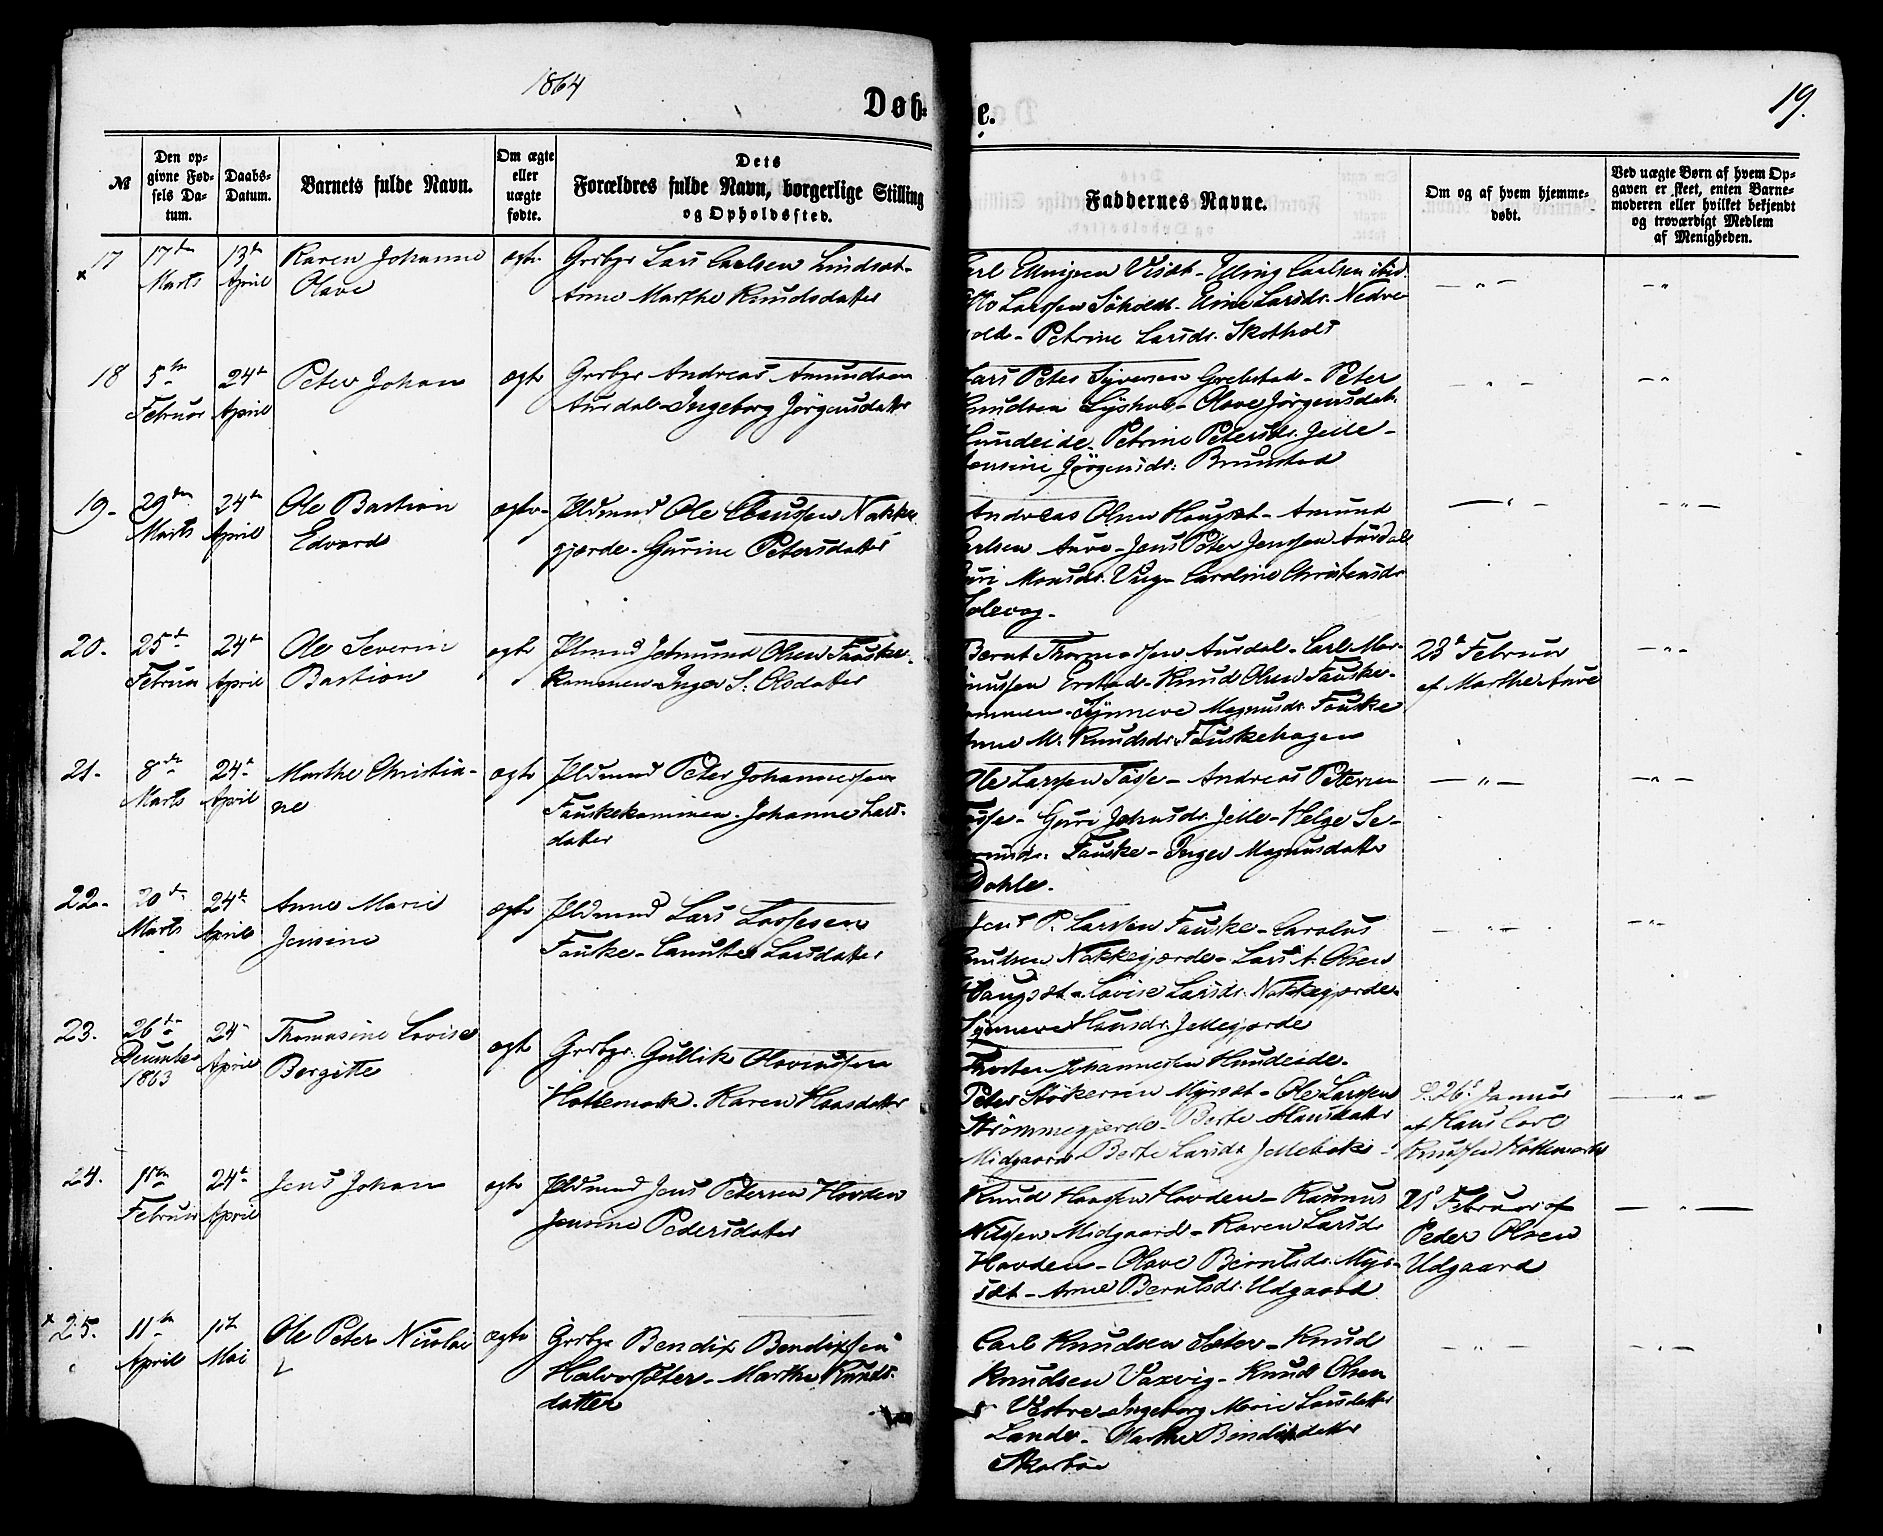 1864
Døb-
e.
19.
№
Den op-
givne Fød-
sels Da-
tum.
Daabs-
Datum.
Barnets fulde Navn.
Om ægte
eller
uægte
fødte.
Dets
Forældres fulde Navn, borgerlige Stilling
og Opholdssted.
Faddernes Navne.
Om og af hvem hjemme-
døbt.
Ved uægte Børn af hvem Op-
gaven er skeet, enten Barne-
moderen eller hvilket bekjendt
og troværdigt Medlem
af Menigheden.
17
17de
Marts
13de
April
Karen Johanne
Olave
ægte
Grbgr Lars Carlsen Lindsæt-
Anne Marthe Knudsdatter
Visæt - Elling Carlsen ibid.
Larssen Søholdt - Larsdr. Nedre-
vold - Petrine Larsdr. Skotholt
18
5te
Februar
24de
April
Peter Johan
ægte
Grbgr Andreas Amundsen
Aursdal - Ingeborg Jørgensdatter
Lars Peter Syversen Grebstad - Peter
Knudsen - Olave Jørgensdtr.
Hundeide. Petrine Petersdr. Jelle -
Jensine Jørgensdr. Brunstad
19.
29de
Marts
24de
April
Ole Bastian
Edvard
ægte
Pldmnd Ole Claussen Nakke
gjærde - Gurine Petersdatter
Andreas Olsen Haugsæt - Amund
Carlsen Aure - Jens Peter Jenssen Aursdal
Guri Monsdr. - Caroline Christensdr
Solevog -
20.
25de
Februar
24de
April
Ole Severin
Bastian
ægte
Plmnd Jetmund Olsen Fauske-
kammen - Inger S. Olsdatter
Bernt Thomassen Aursdal - Carl Mag-
nussen Erstad - Knud Olsen Fauske-
kammen - Synneve Magnusdr. Fauske
Anne M. Knudsdr. Fauskehagen
28de Februar
af Marthe Aure
21.
8de
Marts
24de
April
Marthe Christia-
ne
ægte
Pldmnd Peter Johannessen
Fauskekammen. Johanne Lars-
datter
Ole Larssen Tøsse - Andreas Petersen
Tøsse - Guri Johnsdr. Jelle - Helge Se-
Fauske - Inger Magnusdatter
Dahle.
22.
20de
Marts
24de
April
Anne Marie
Jensine
ægte
Pldmnd Lars Larssen
Fauske - Larsdatter
Jens P. Larsen Fauske - Carolus
Knudsen Nakkegjærde - Lars A. Olsen
Haugsæt - Lovise Larsdr. Nakkegjærde -
Synneve Hansdr. Jellegjærde
23.
26de
December
1863
24
April
Thomasine Lovise
Bergitte
ægte
Grbgr. Gullik Olavussen
Hollemork. Karen Hansdatter
Thosten Johannessen Hundeide -
Peter Myrsæt - Ole Larssen
Strømmegjerde - Berte Hansdatter
Midgaard Berte Larsdr. Jellebak -
d. 26de Januar
af Hans Carl
Knudsen
24.
11te
Februar
24de
April
Jens Johan
ægte
Pldmnd Jens Petersen Hovden
Jensine Pedersdatter
Knud Hanssen Hovden - Rasmus
Nilssen Midgaard - Karen Larsdr
Hovden - Olave Berntsdr. Myr-
sæt - Anne Berntsdr. Udgaard
21de Februar af
Peder Olsen
Udgaard
25.
11te
April
1ste
Mai
Ole Peter Nicolai
ægte
Grbgr Bendix Bendixsen
Halvorsæter - Marthe Knuds-
datter
Carl Knudsen Sæter - Knud
Knudsen Vaxvig - Knud Olsen
Vestre - Ingeborg Marie Larsdatter
Lande - Marthe Bendixdatter
Skorbøe